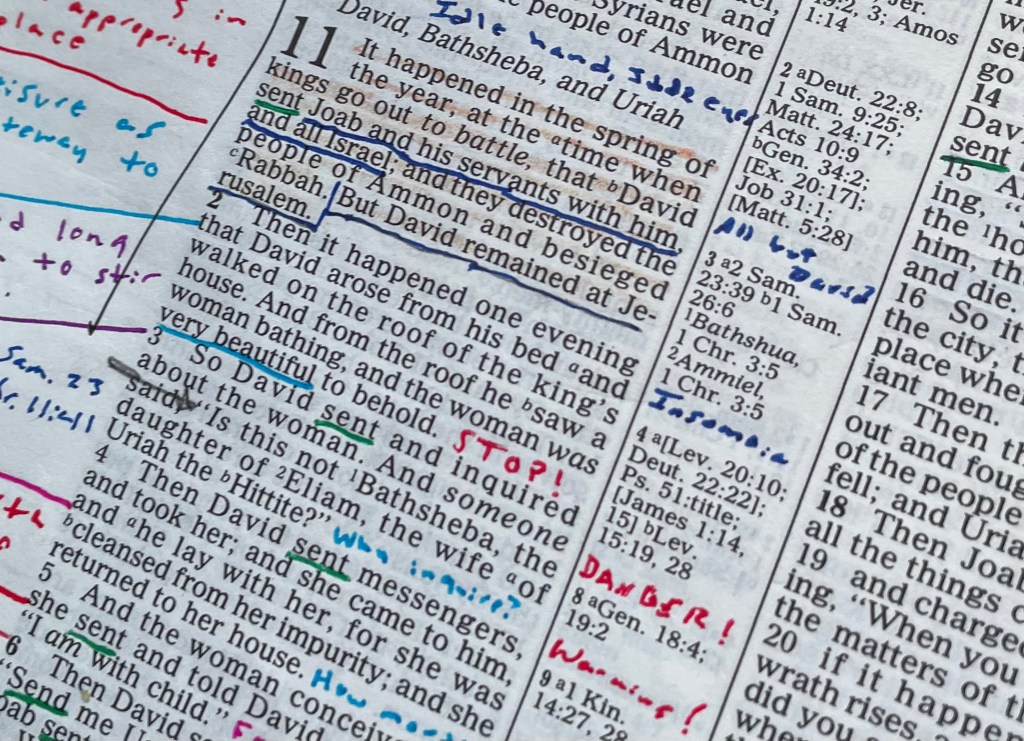 s in
appropriate
place
isure as
teway to
d long
to stir
Sam. 23
11:411
el and
Syrians were
e people of Ammon
David, Bathsheba, and Uriah
Idle hand, Idle eyes
11 It happened in the spring of
the year, at the ᵃtime when
kings go out to battle, that ᵇDavid
sent Joab and his servants with him,
and all Israel; and they destroyed the
people of Ammon and besieged
ᶜRabbah. But David remained at Je-
rusalem.
2 Then it happened one evening
that David arose from his bed ᵃand
walked on the roof of the king's
house. And from the roof he ᵇsaw a
woman bathing, and the woman was
very beautiful to behold. STOP!
3 So David sent and inquired
about the woman. And someone
said, "Is this not ¹Bathsheba, the
daughter of ²Eliam, the wife ᵃof
Uriah the ᵇHittite?" Why inquire?
4 Then David sent messengers,
and took her; and she came to him,
and ᵃhe lay with her, for she was
ᵇcleansed from her impurity; and she
returned to her house.
5 And the woman conceiv
she sent and told David
"I am with child."
6 Then David s
"Send me U
oab sent
How
Jer.
19:2, 3; Amos
1:14
2 ᵃDeut. 22:8;
1 Sam. 9:25;
Matt. 24:17;
Acts 10:9
ᵇGen. 34:2;
[Ex. 20:17];
Job 31:1;
[Matt. 5:28]
All but
David
3 ᵃ2 Sam.
23:39 ᵇ1 Sam.
26:6
¹Bathshua,
1 Chr. 3:5
²Ammiel,
1 Chr. 3:5
Insomnia
4 ᵃ[Lev. 20:10;
Deut. 22:22];
Ps. 51:title;
[James 1:14,
15] ᵇLev.
15:19, 28
DANGER!
8 ᵃGen. 18:4;
19:2
Warning!
9 ᵃ1 Kin.
14:27, 28
go
14
Dav
sent
15 A
ing, "
the ¹ho
him, th
and die.
16 So it
the city, t
place whe
iant men.
17 Then th
out and foug
of the people
fell; and Uria
18 Then Joa
all the things c
19 and charge
ing, "When you
the matters of t
20 if it happen
wrath rises,
did you
whe